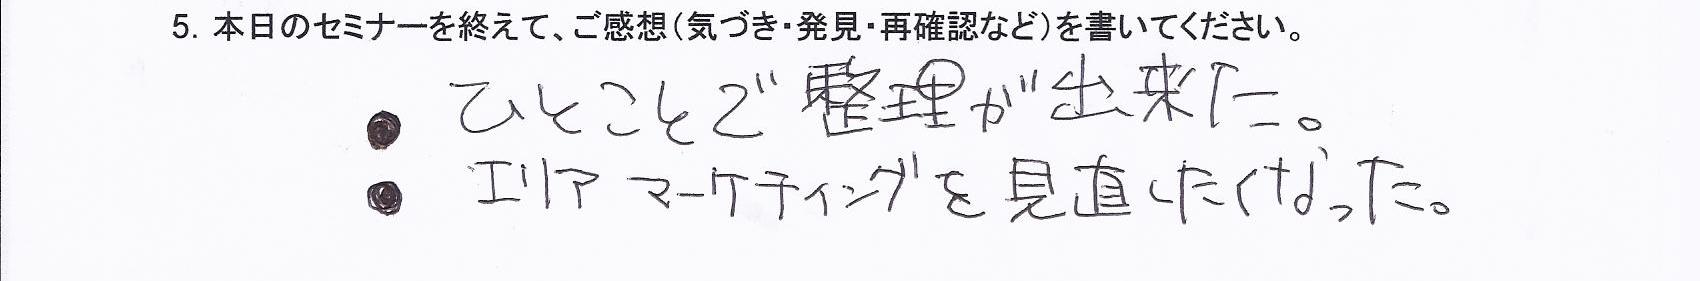 5. 本日のセミナーを終えて、ご感想（気づき・発見・再確認など）を書いてください。
● ひとことで整理が出来た。
● エリアマーケティングを見直したくなった。